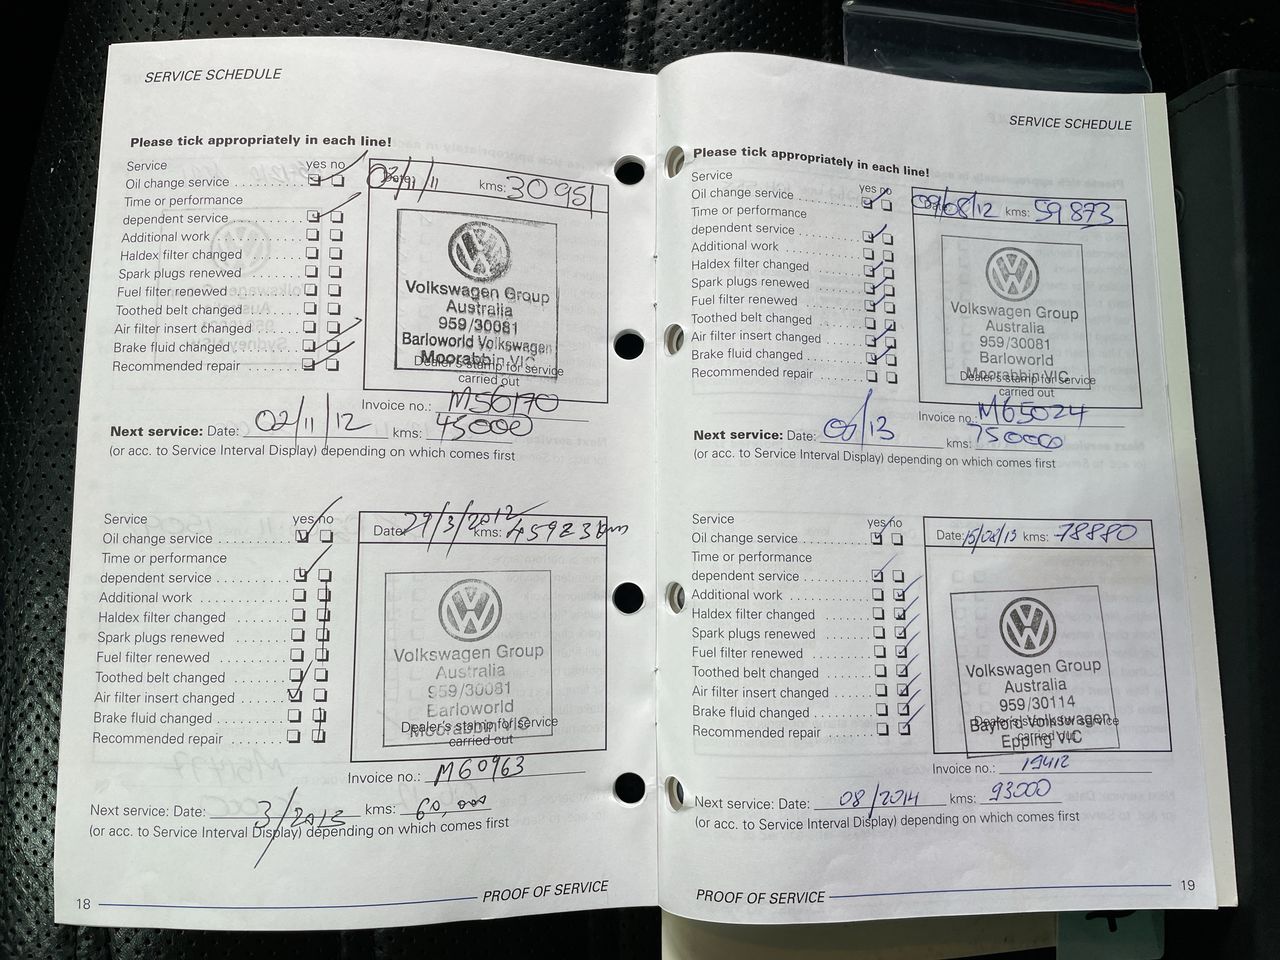 SERVICE SCHEDULE
Please tick appropriately in each line!
Service yes no
Oil change service
Time or performance
dependent service
Additional work
Haldex filter changed
Spark plugs renewed
Fuel filter renewed
Toothed belt changed
Air filter insert changed
Brake fluid changed
Recommended repair
02/11/11 kms: 30951
Volkswagen Group
Australia
959/30081
Barloworld Volkswagen
Moorabbin VIC
Dealer's stamp for service
carried out
Invoice no.: M56170
Next service: Date: 02/11/12 kms: 45000
(or acc. to Service Interval Display) depending on which comes first
Service yes no
Oil change service
Time or performance
dependent service
Additional work
Haldex filter changed
Spark plugs renewed
Fuel filter renewed
Toothed belt changed
Air filter insert changed
Brake fluid changed
Recommended repair
Date: 29/3/2012 kms: 45923km
Volkswagen Group
Australia
959/30081
Barloworld
Moorabbin VIC
Dealer's stamp for service
carried out
Invoice no.: M60963
Next service: Date: 3/2013 kms: 60,000
(or acc. to Service Interval Display) depending on which comes first
18 PROOF OF SERVICE
SERVICE SCHEDULE
Please tick appropriately in each line!
Service yes no
Oil change service
Time or performance
dependent service
Additional work
Haldex filter changed
Spark plugs renewed
Fuel filter renewed
Toothed belt changed
Air filter insert changed
Brake fluid changed
Recommended repair
09/08/12 kms: 59873
Volkswagen Group
Australia
959/30081
Barloworld
Moorabbin VIC
Dealer's stamp for service
carried out
Invoice no.: M65024
Next service: Date: 08/13 kms: 750000
(or acc. to Service Interval Display) depending on which comes first
Service yes no
Oil change service
Time or performance
dependent service
Additional work
Haldex filter changed
Spark plugs renewed
Fuel filter renewed
Toothed belt changed
Air filter insert changed
Brake fluid changed
Recommended repair
Date: 15/08/13 kms: 78880
Volkswagen Group
Australia
959/30114
Bayford Volkswagen
Epping VIC
Dealer's stamp for service
carried out
Invoice no.: 19412
Next service: Date: 08/2014 kms: 93000
(or acc. to Service Interval Display) depending on which comes first
PROOF OF SERVICE 19